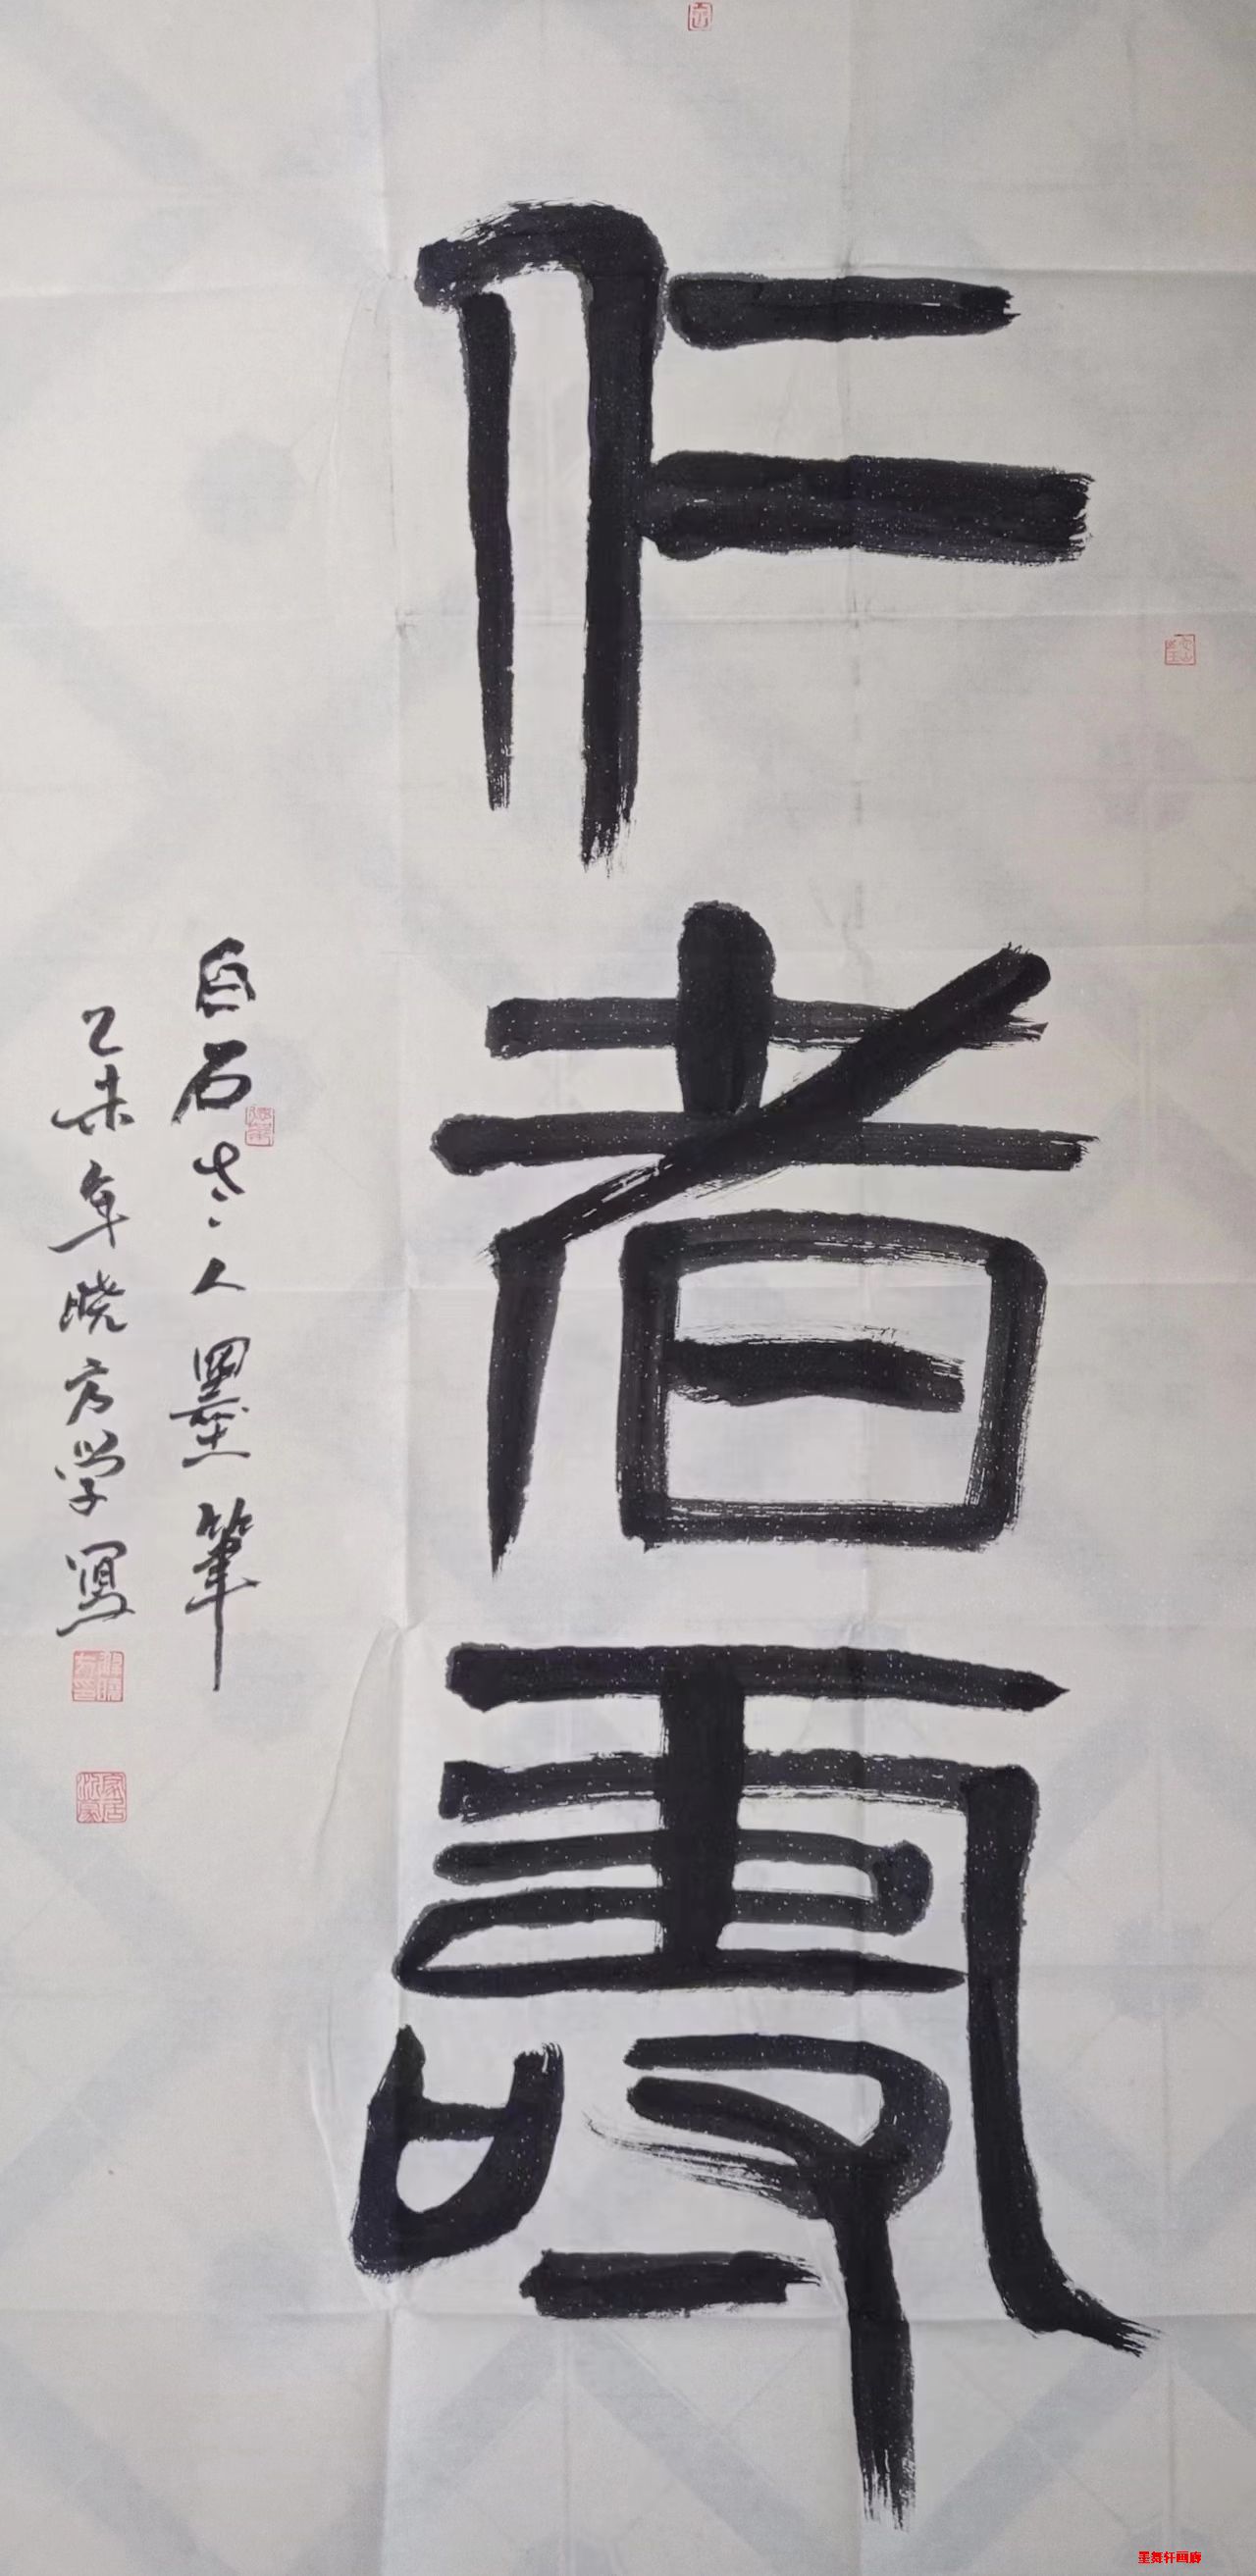 仁者壽
白石老人墨筆
乙未年曉方学寫
墨舞轩画廊